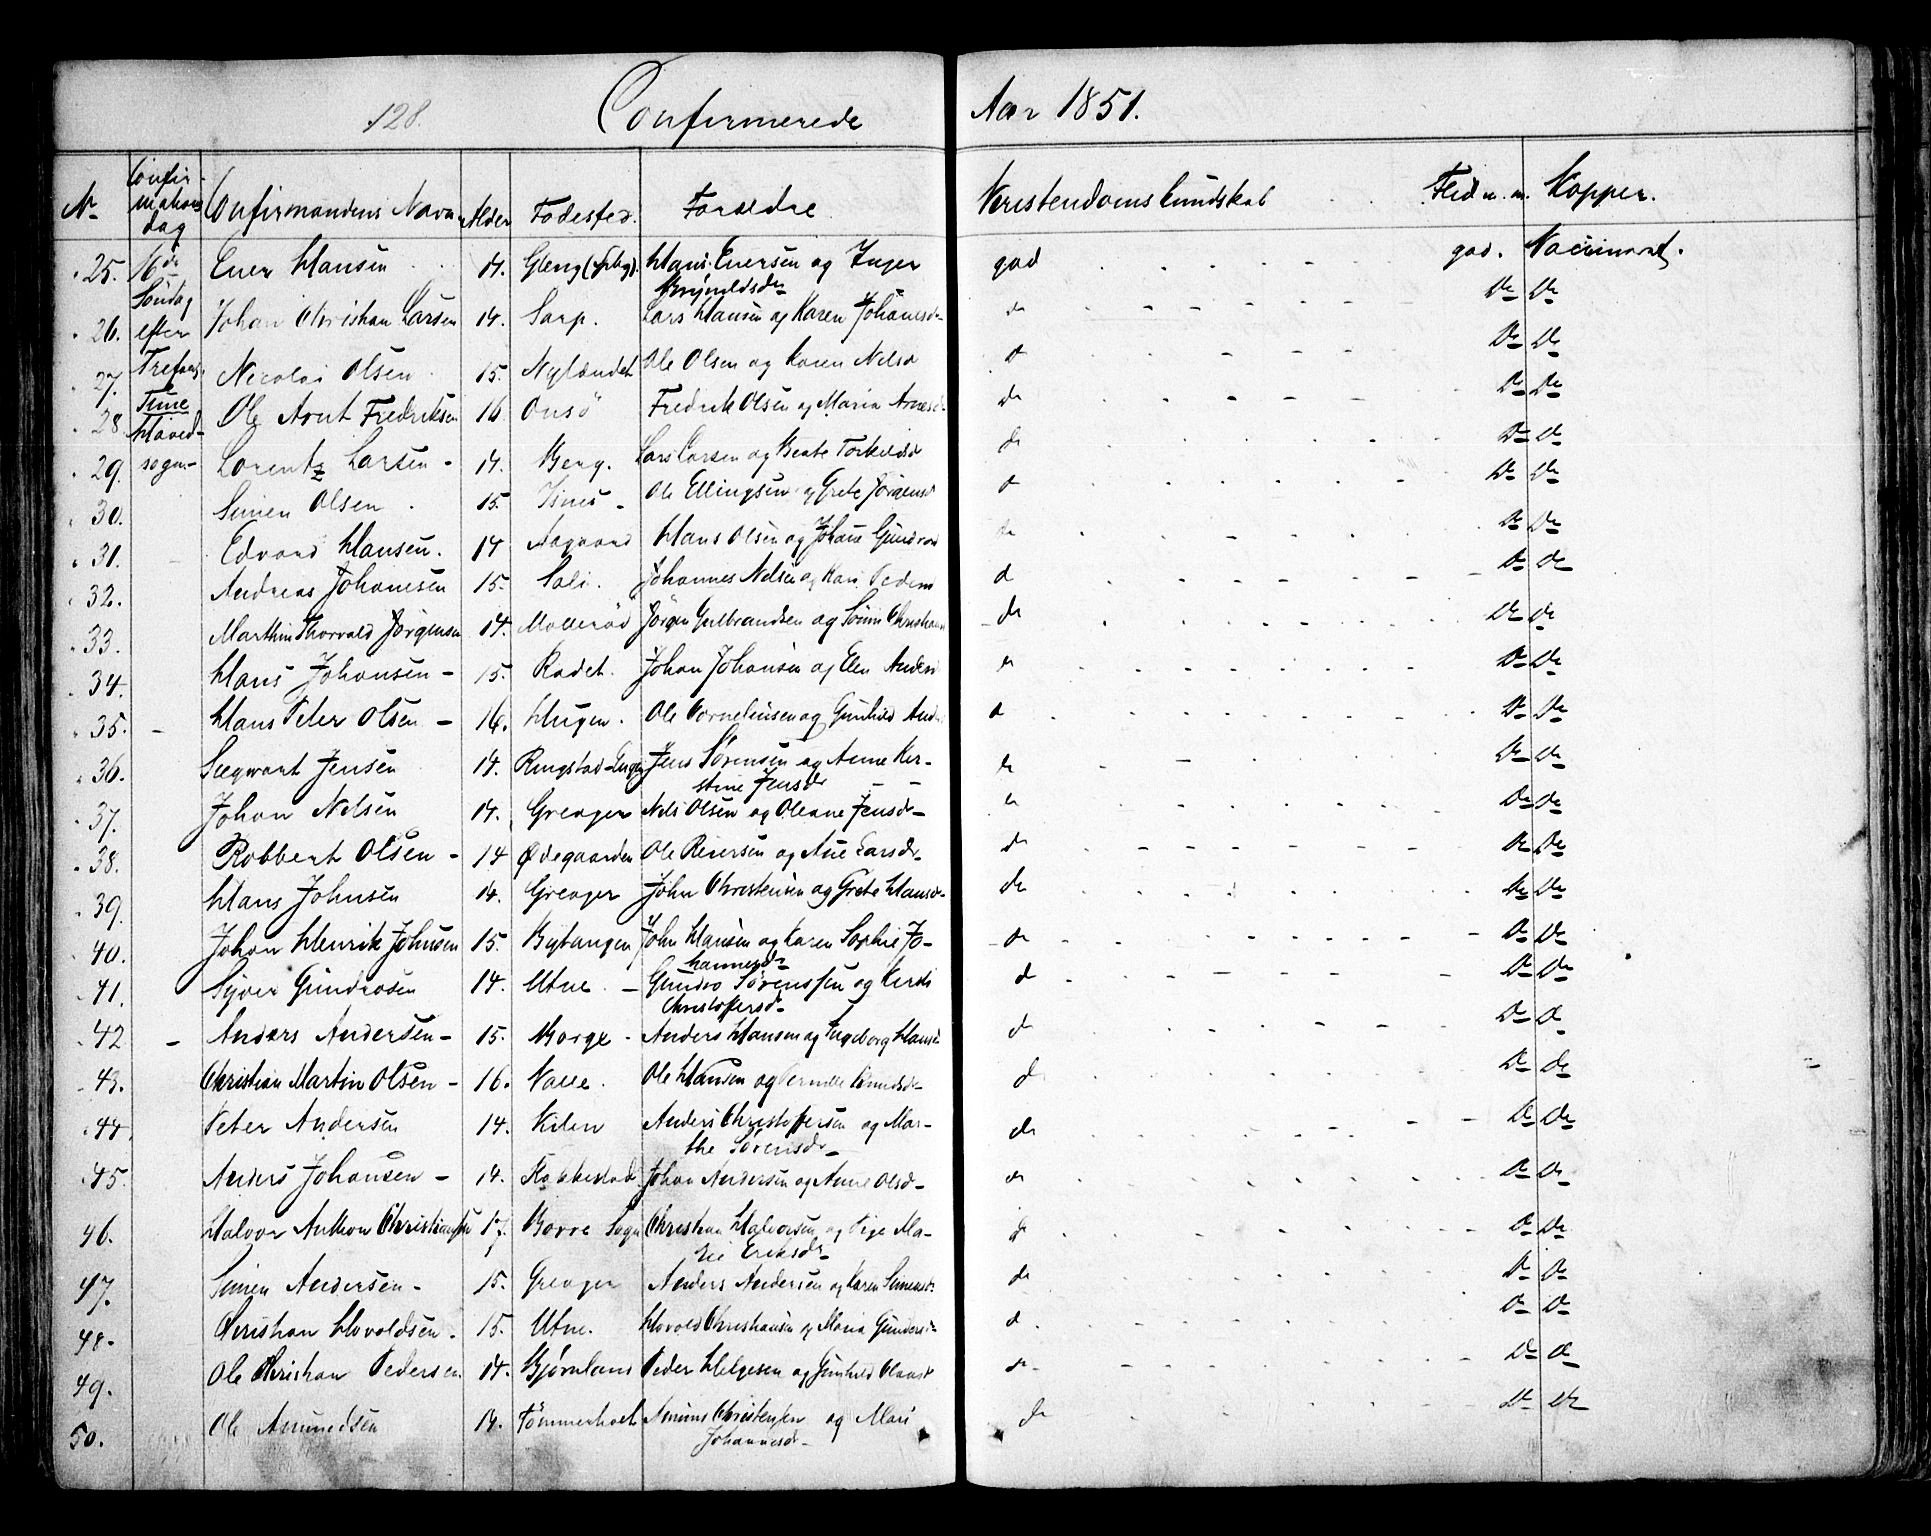 128. Confirmerede Aar 1851.
No Confirmations dag Confirmandens Navn Alder Fødested. Forældre Kristendoms kundskab Flid m. m. Kopper.
25. 16de Ener Hansen 14. Gleng Hans Enersen og Inger god god. Vaccineret.
Søndag
26. efter Johan Christian Larsen 14. Sarp. Lars Hansen og Karen Johanesdr do Do Do
27. Trefold. Nicolai Olsen 15. Nylændet Ole Olsen og Karen Nelsd d Do Do
28. Tune Hoved- Ole Arnt Fredriksen 16 Onsö Fredrik Olsen og Maria do Do Do
29. sogn- Lorentz Larsen - 14. Berg. Lars Larsen og Beate Torkelsd do Do Do
30. Simen Olsen 15. Ole Ellingsen og Grete Jörgensd d Do Do
31. Edvard Hansen. 14 Aagaard Hans Olsen og Johane do Do Do
32. Andreas Johanesen 15. Soli. Johannes Nelsen og Kari d Do De
33. Marthin Thorvald Jörgensen 14. Jörgen Gulbrandsen og do Do Do
34. Hans Johansen - 15. Rodet. Johan Johansen og Elen Anders do Do Do
35. Hans Peter Olsen - 16. Hugen. Ole Corneliusen og Gunhild And d Do Do
36. Jensen 14. Jens Sørensen og Anne Ker- do Do Do
stine Jensdr
37. Johan Nelsen 14. Greager Nels Olsen og Oleane Jensdr do Do Do
38. Robbert Olsen - 14 Ødegaarden Ole Reiersen og Ane Larsdr do Do Do
39. Hans Johnsen 14. Greager John Christensen og Grete Hansdr do Do Do
40. Johan Henrik Johnsen 15. Bytangen John Hansen og Karen Sophie Jo- do Do Do
hannesdr
41. Syver Gundrosen 14. Utne. - Gundro Sørenssen og d Do Do
Christoffersdr
42 - Anders Andersen - 15. Borge - Anders Hansen og Ingeborg Hansd d Do D
43. Christian Martin Olsen - 16. Valle. Ole Hansen og Pernille d Do do
44. Peter Andersen 14. Kilen Anders Christoffersen og Mar- do Do Do
the Sörensdr
45. Anders Johansen - 14. Johan Andersen og Anne Olsdr do Do Do
46. Halvor Anthon Christiansen 17. Borre Sogn Christian Halvorsen og Ma- do Do Do
Eriksdr
47. Simen Andersen - 15. Greager Anders Andersen og Karen Simensdr do Do Do
48. Christian Hovoldsen. 15. Utne. Hovold Christiansen og Maria Gunders d Do Do
49. Ole Christian Pedersen 14. Peder Helgesen og Gunhild Olavsd do Do Do
50. Ole Amundsen 14. Tömmerholt Christensen og Mari do Do Do
Johannesdr